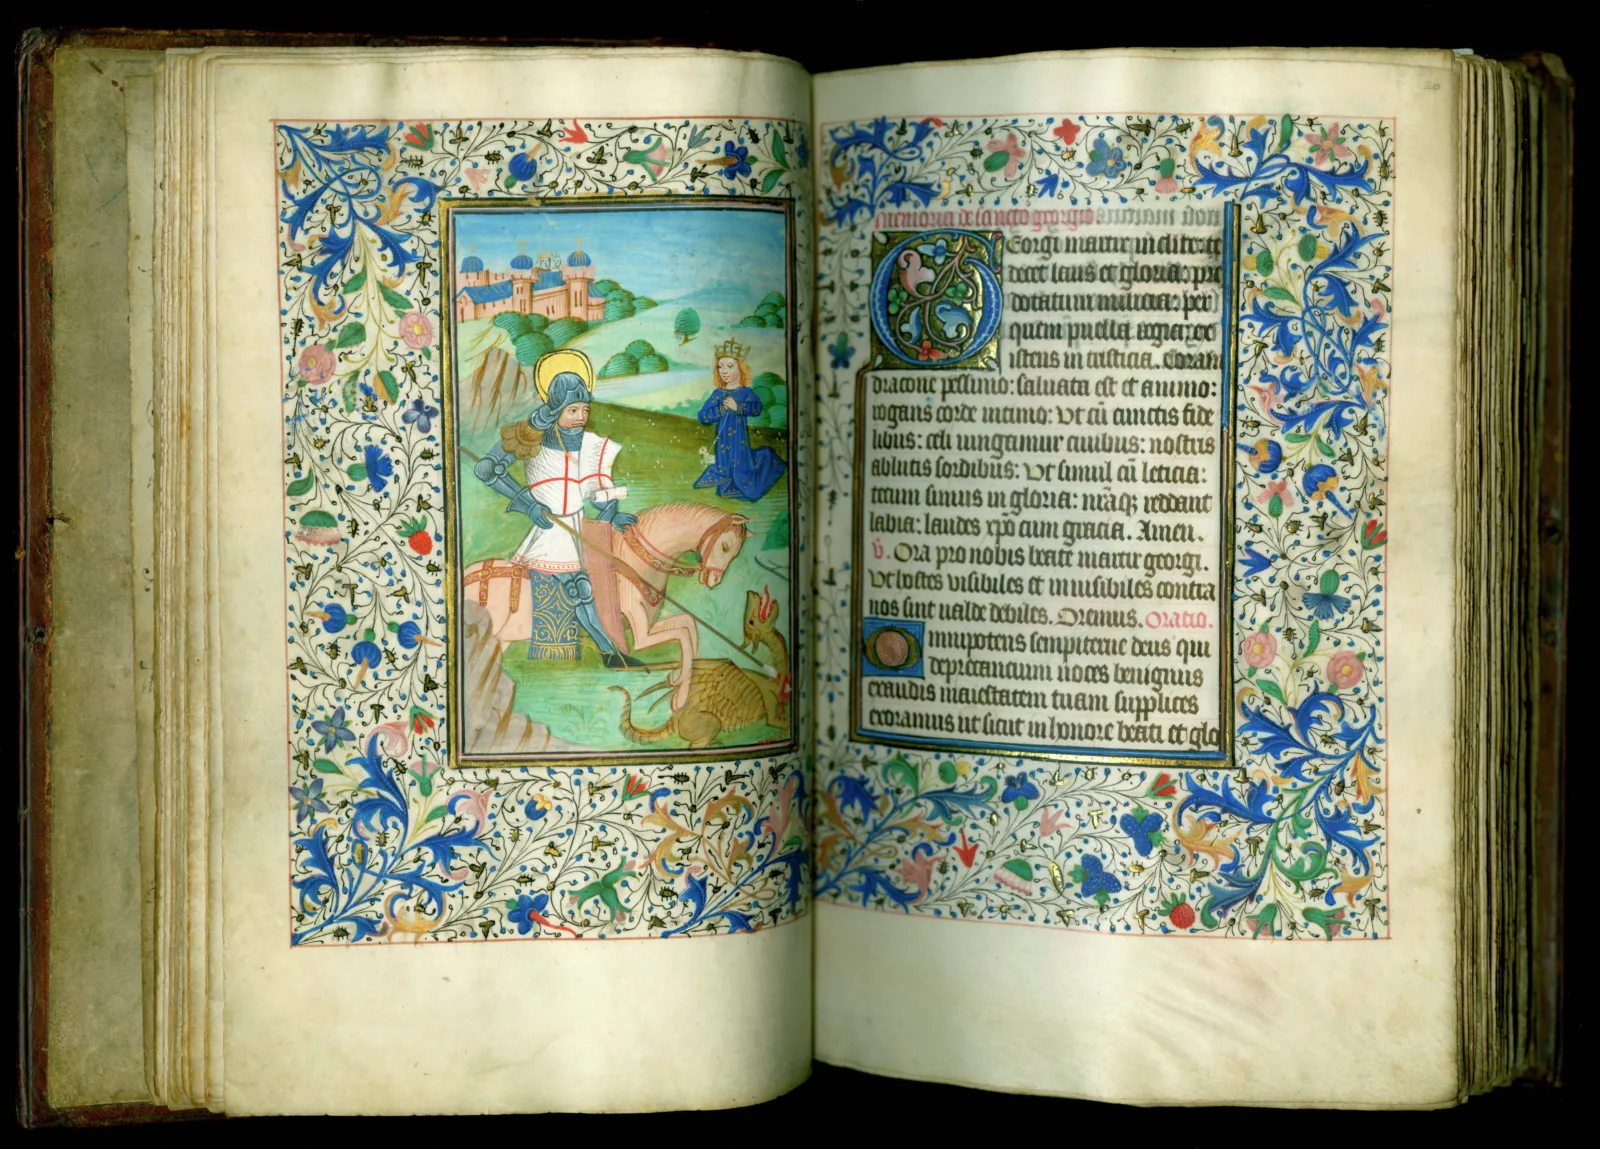 20
Memoria de sancto georgio
Georgi martir inclite te
decet laus et gloria: pre
dotatum milicia: per
quem puella regia: ex
istens in tristicia. Coram
dracone pessimo: saluata est et animo:
rogans corde intimo: Vt cū cunctis fide
libus: celi iungamur ciuibus: nostris
ablutis sordibus: Vt simul cū leticia:
tecum simus in gloria:  reddant
labia: laudes xp̄o cum gracia. Amen.
v̄. Ora pro nobis beate martir georgi.
Vt hostes visibiles et inuisibiles contra
nos sint ualde debiles. Oremus. Oratio.
Omnipotens sempiterne deus qui
deprecantium uoces benignus
exaudis maiestatem tuam supplices
exoramus ut sicut in honore beati et glo